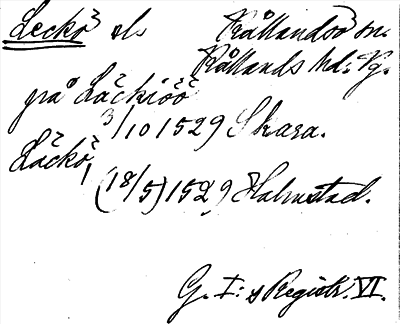 Leckö sl. Kållandsö sn.
Kållands hd. Vg.
på Läckiöö
3/10 1529 Skara.
Läckö,
(18/5) 1529 Halmstad.
G. I:s Registr. VI.